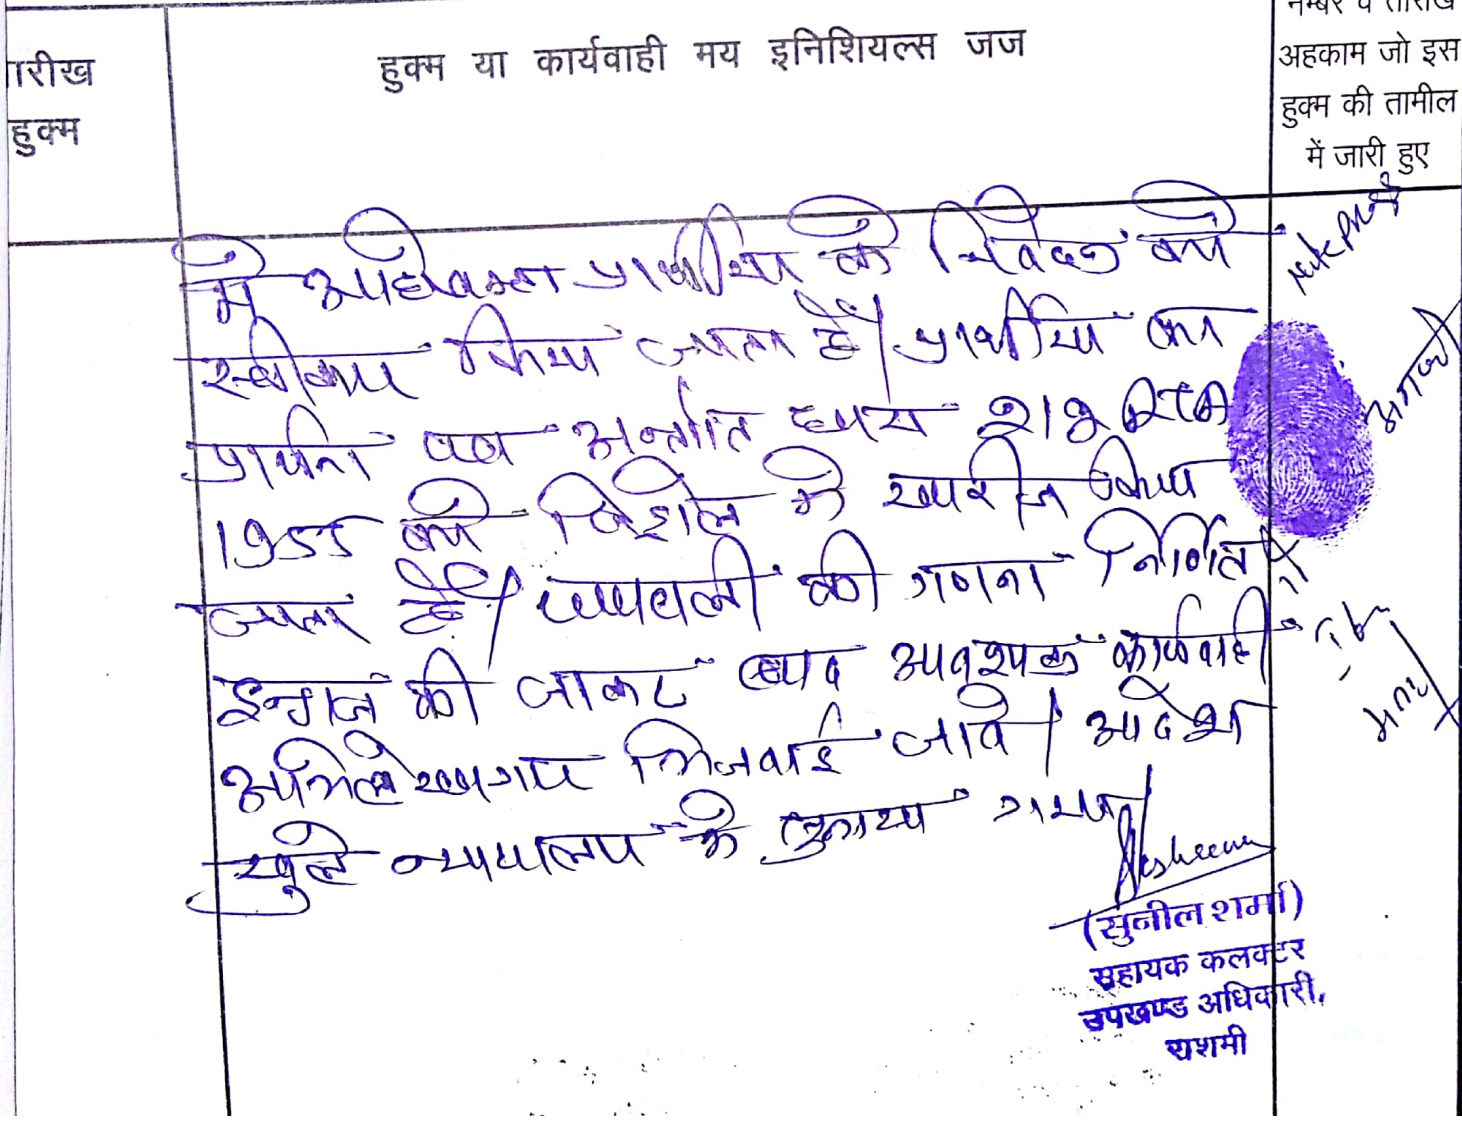 तारीख
हुक्म
हुक्म या कार्यवाही मय इनिशियल्स जज
नम्बर व तारीख
अहकाम जो इस
हुक्म की तामील
में जारी हुए
मे अधिवक्ता प्रार्थीया के निवेदन को
स्वीकार किया जाता है। प्रार्थीया का
प्रार्थना पत्र अन्तर्गत धारा 212 RTA
1955 को विड्रोल मे खारीज किया
जाता है। पत्रावली की गणना निर्णित
इन्द्राज की जाकर बाद आवश्यक कार्यवाही
अभिलेखागार भिजवाई जावे। आदेश
खुले न्यायालय मे सुनाया गया।
(सुनील शर्मा)
सहायक कलक्टर
उपखण्ड अधिकारी,
राशमी